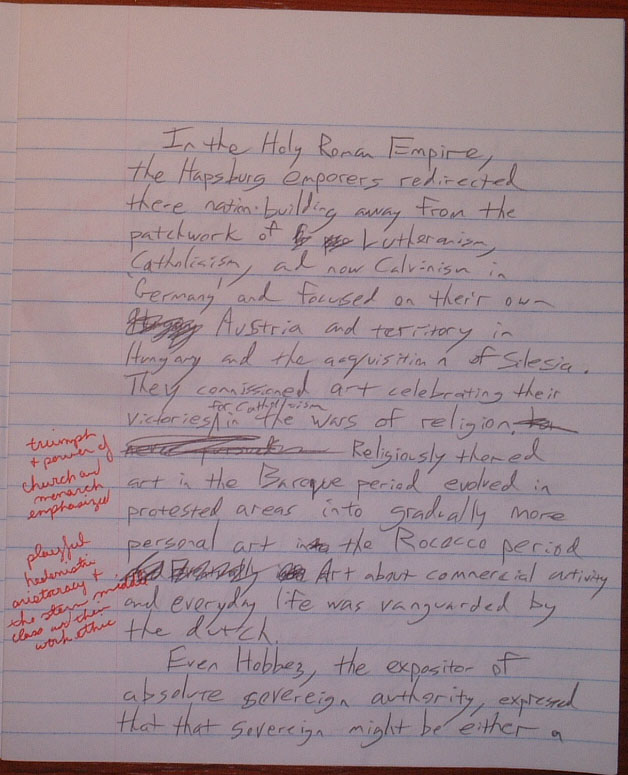 In the Holy Roman Empire,
the Hapsburg emporers redirected
there nation-building away from the
patchwork of Lutheranism,
Catholicism, ad now Calvinism in
'Germany' and focused on their own
Austria and territory in
Hungary and the aqquisition of Silesia.
They comissioned art celebrating their
for Catholicism
victories in the wars of religion.
Religiously themed
art in the Baroque period evolved in
protested areas into gradually more
personal art in the Rococco period
Art about commercial activity
and everyday life was vanguarded by
the dutch.
Even Hobbez, the expositor of
absolute sovereign authority, expressed
that that sovereign might be either a
triumph
+ power of
church and
monarch
emphasized
playful
hedonistic
aristocracy +
the stern middle
class and their
work ethic